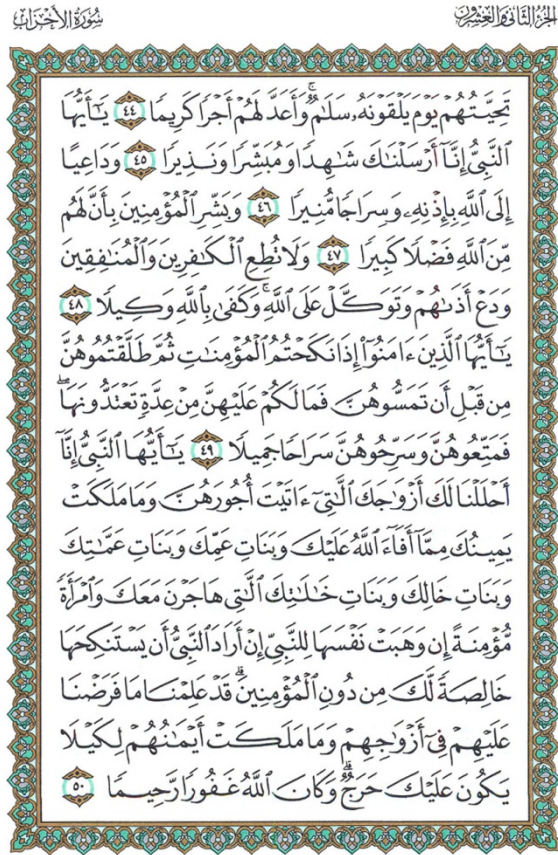 الجزء الثاني والعشرون
سورة الأحزاب
تَحِيَّتُهُمْ يَوْمَ يَلْقَوْنَهُۥ سَلَٰمٌ ۚ وَأَعَدَّ لَهُمْ أَجْرًا كَرِيمًا ٤٤ يَٰٓأَيُّهَا
ٱلنَّبِىُّ إِنَّآ أَرْسَلْنَٰكَ شَٰهِدًا وَمُبَشِّرًا وَنَذِيرًا ٤٥ وَدَاعِيًا
إِلَى ٱللَّهِ بِإِذْنِهِۦ وَسِرَاجًا مُّنِيرًا ٤٦ وَبَشِّرِ ٱلْمُؤْمِنِينَ بِأَنَّ لَهُم
مِّنَ ٱللَّهِ فَضْلًا كَبِيرًا ٤٧ وَلَا تُطِعِ ٱلْكَٰفِرِينَ وَٱلْمُنَٰفِقِينَ
وَدَعْ أَذَىٰهُمْ وَتَوَكَّلْ عَلَى ٱللَّهِ ۚ وَكَفَىٰ بِٱللَّهِ وَكِيلًا ٤٨
يَٰٓأَيُّهَا ٱلَّذِينَ ءَامَنُوٓا۟ إِذَا نَكَحْتُمُ ٱلْمُؤْمِنَٰتِ ثُمَّ طَلَّقْتُمُوهُنَّ
مِن قَبْلِ أَن تَمَسُّوهُنَّ فَمَا لَكُمْ عَلَيْهِنَّ مِنْ عِدَّةٍ تَعْتَدُّونَهَا ۖ
فَمَتِّعُوهُنَّ وَسَرِّحُوهُنَّ سَرَاحًا جَمِيلًا ٤٩ يَٰٓأَيُّهَا ٱلنَّبِىُّ إِنَّآ
أَحْلَلْنَا لَكَ أَزْوَٰجَكَ ٱلَّٰتِىٓ ءَاتَيْتَ أُجُورَهُنَّ وَمَا مَلَكَتْ
يَمِينُكَ مِمَّآ أَفَآءَ ٱللَّهُ عَلَيْكَ وَبَنَاتِ عَمِّكَ وَبَنَاتِ عَمَّٰتِكَ
وَبَنَاتِ خَالِكَ وَبَنَاتِ خَٰلَٰتِكَ ٱلَّٰتِى هَاجَرْنَ مَعَكَ وَٱمْرَأَةً
مُّؤْمِنَةً إِن وَهَبَتْ نَفْسَهَا لِلنَّبِىِّ إِنْ أَرَادَ ٱلنَّبِىُّ أَن يَسْتَنكِحَهَا
خَالِصَةً لَّكَ مِن دُونِ ٱلْمُؤْمِنِينَ ۗ قَدْ عَلِمْنَا مَا فَرَضْنَا
عَلَيْهِمْ فِىٓ أَزْوَٰجِهِمْ وَمَا مَلَكَتْ أَيْمَٰنُهُمْ لِكَيْلَا
يَكُونَ عَلَيْكَ حَرَجٌ ۗ وَكَانَ ٱللَّهُ غَفُورًا رَّحِيمًا ٥٠